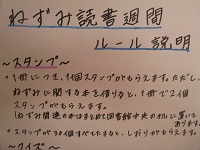 ねずみ読書週間
ルール説明
～スタンプ～
・1冊につき、1個スタンプがもらえます。ただし、
ねずみに関する本を借りると、1冊で2個
スタンプがもらえます。
(ねずみ関連の本はまとめて図書館中央の机に置いて
あります。)
・スタンプが3個すべてたまると、しおりがもらえます。
～クイズ～